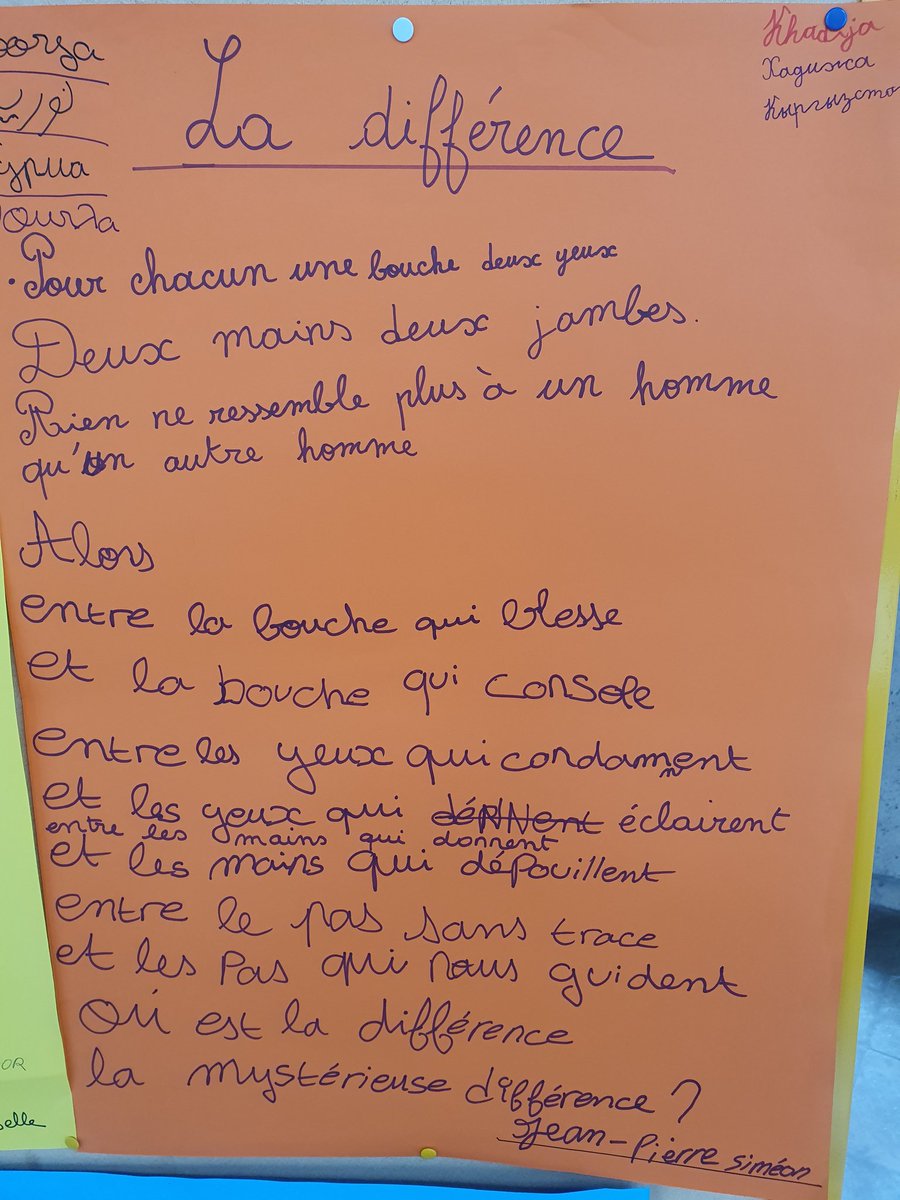 La différence
Khadija
Хадижа
نوريـ
Pour chacun une bouche deux yeux
Deux mains deux jambes.
Rien ne ressemble plus à un homme
qu'un autre homme
Alors
entre la bouche qui blesse
et la bouche qui console
entre les yeux qui condamnent
et les yeux qui éclairent
entre les mains qui donnent
et les mains qui dépouillent
entre le pas sans trace
et les pas qui nous guident
Où est la différence
la mystérieuse différence ?
Jean-Pierre Siméon